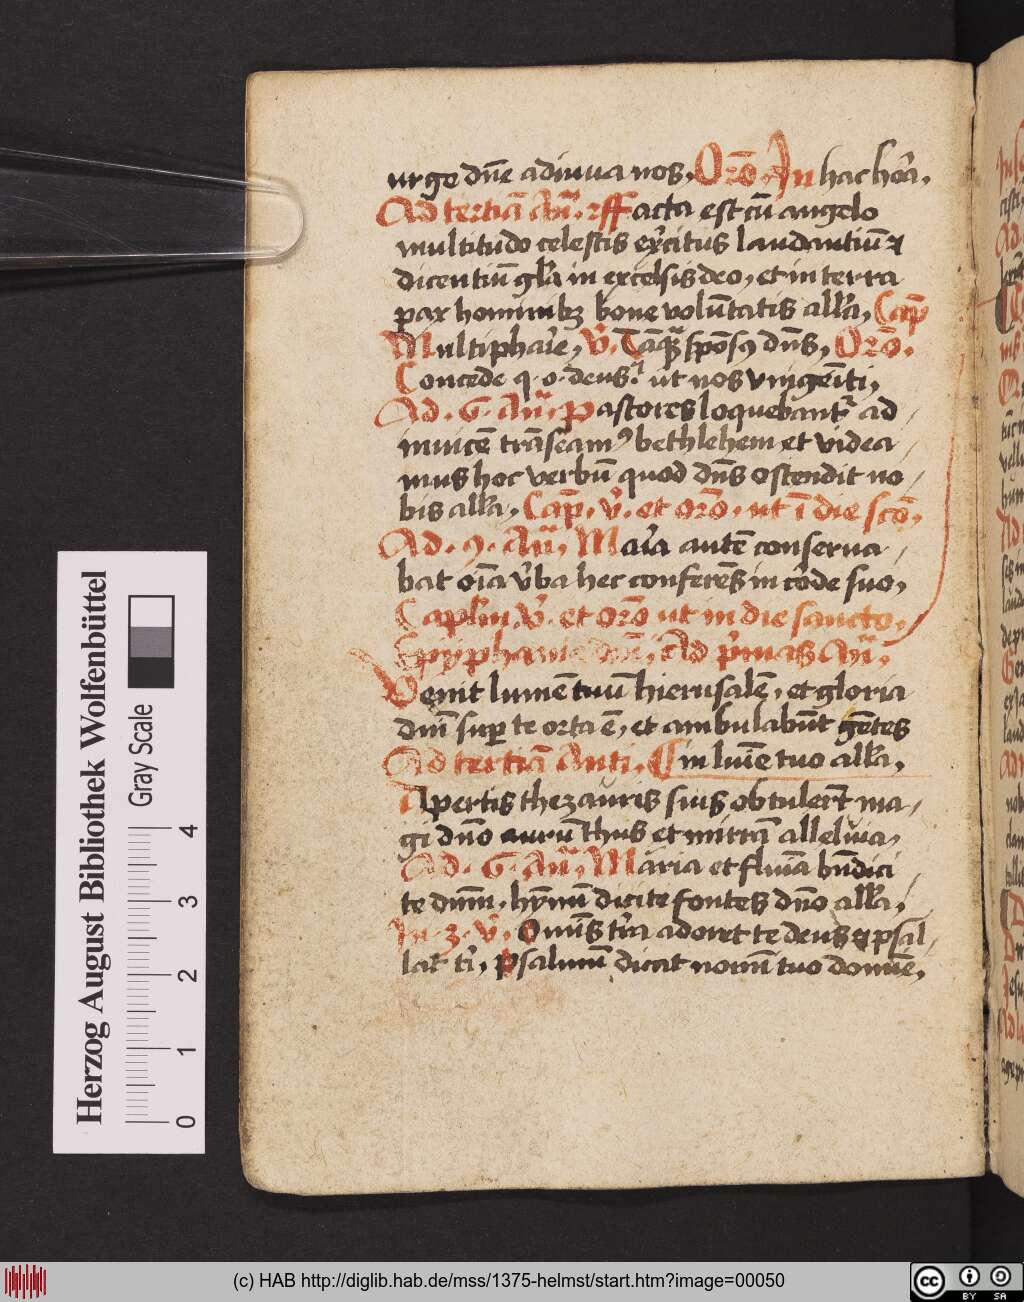 urge dñe adiuua nos. Orõ. In hac hõra.
Ad terciã Añ. rff acta est cũ angelo
multitudo celestis exẽrcitus laudantiũ ⁊
dicentiũ glã in excelsis deo, et in terra
pax hominibꝫ bone volũtatis allã, Cap̃
Multipharie, v̉. Tãqꝫ spõsꝰ dñs, Orõ.
Concede q. o. deus. ut nos vnigẽiti,
Ad. G. Añ. Pastores loquebant̉ ad
inuicẽ trãseamꝰ bethlehem et videa
mus hoc verbũ quod dñs ostendit no
bis allã, Cap̃. v̉. et orõ. ut ĩ die scõ,
Ad. 9. Añ. Maria autẽ conserua
bat oĩa v̉ba hec conferẽs in corde suo,
Caplm̃, v̉. et orõ ut in die sancto,
Epyphanie dñi, Ad p̉mas Añ.
Venit lumẽ tuũ hierusalẽ, et gloria
dñi sup̱ te orta ẽ, et ambulabũt gẽtes
Ad terciã Anti. Et in luĩe tuo allã,
Apertis thezauris suis obtulerũt ma
gi dño aurũ thus et mirrã alleluia,
Ad. G. Añ, Maria et fluĩa bñdici
te dñm, hỹnũ dicite fontes dño allã,
In. 3. v̉. Omĩs t̉ra adoret te deus ⁊ psal
lat t̉i, Psalmũ dicat nomĩ tuo domĩe,
Herzog August Bibliothek Wolfenbüttel
Gray Scale
0 1 2 3 4
(c) HAB http://diglib.hab.de/mss/1375-helmst/start.htm?image=00050
cc BY SA